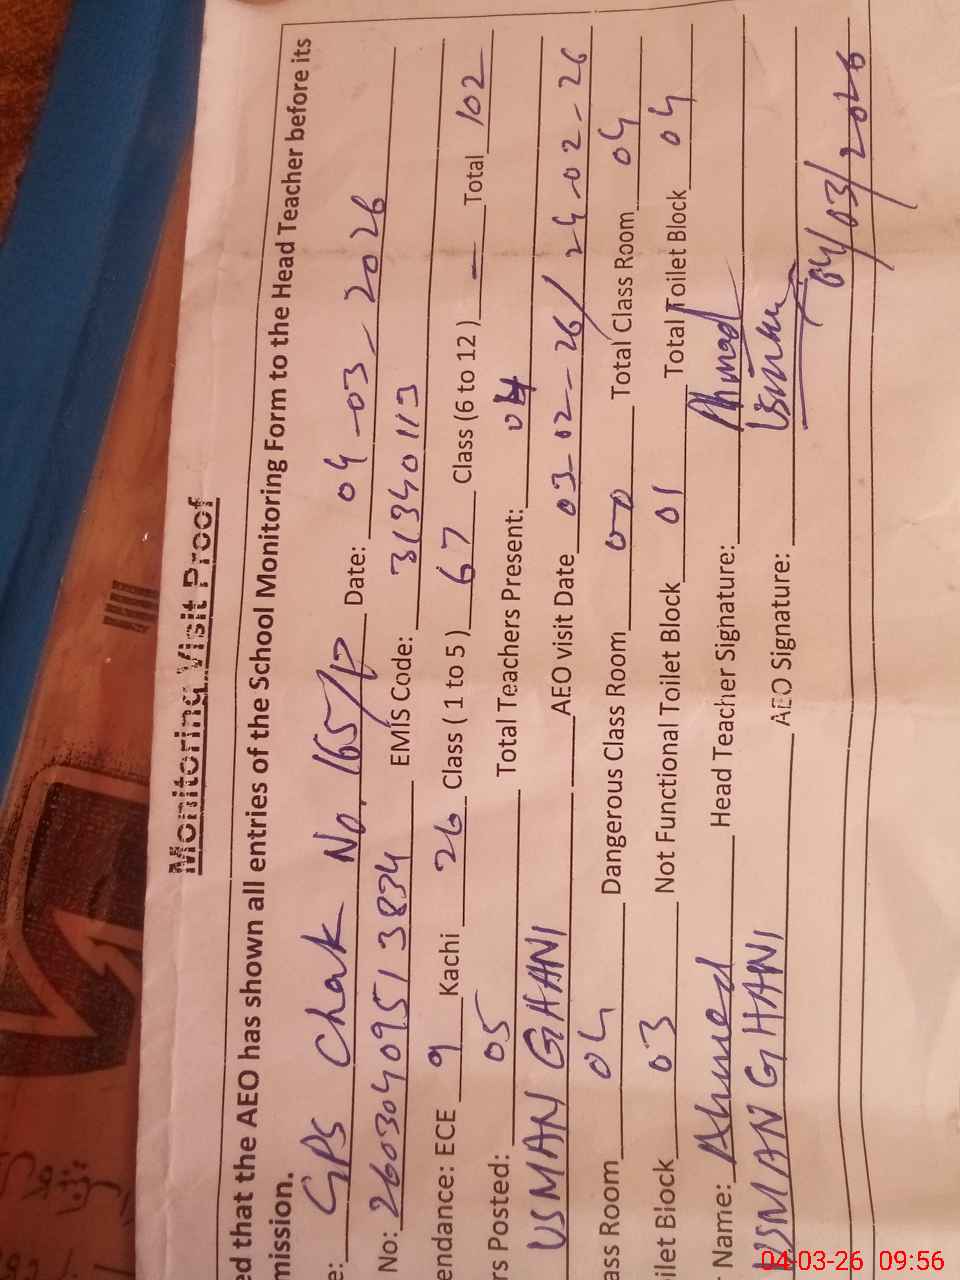 Monitoring Visit Proof
ed that the AEO has shown all entries of the School Monitoring Form to the Head Teacher before its
mission.
e: GPS Chak No. 165/P Date: 04-03-2026
No: 2603040951 3834 EMIS Code: 31340113
endance: ECE 9 Kachi 26 Class ( 1 to 5 ) 67 Class (6 to 12 ) — Total 102
rs Posted: 05 Total Teachers Present: 04
USMAN GHANI AEO visit Date 03-02-26/24-02-26
ass Room 04 Dangerous Class Room 00 Total Class Room 04
ilet Block 03 Not Functional Toilet Block 01 Total Toilet Block 04
r Name: Ahmed Head Teacher Signature: Ahmad
USMAN GHANI AEO Signature: Usman
04/03/2026
04-03-26 09:56